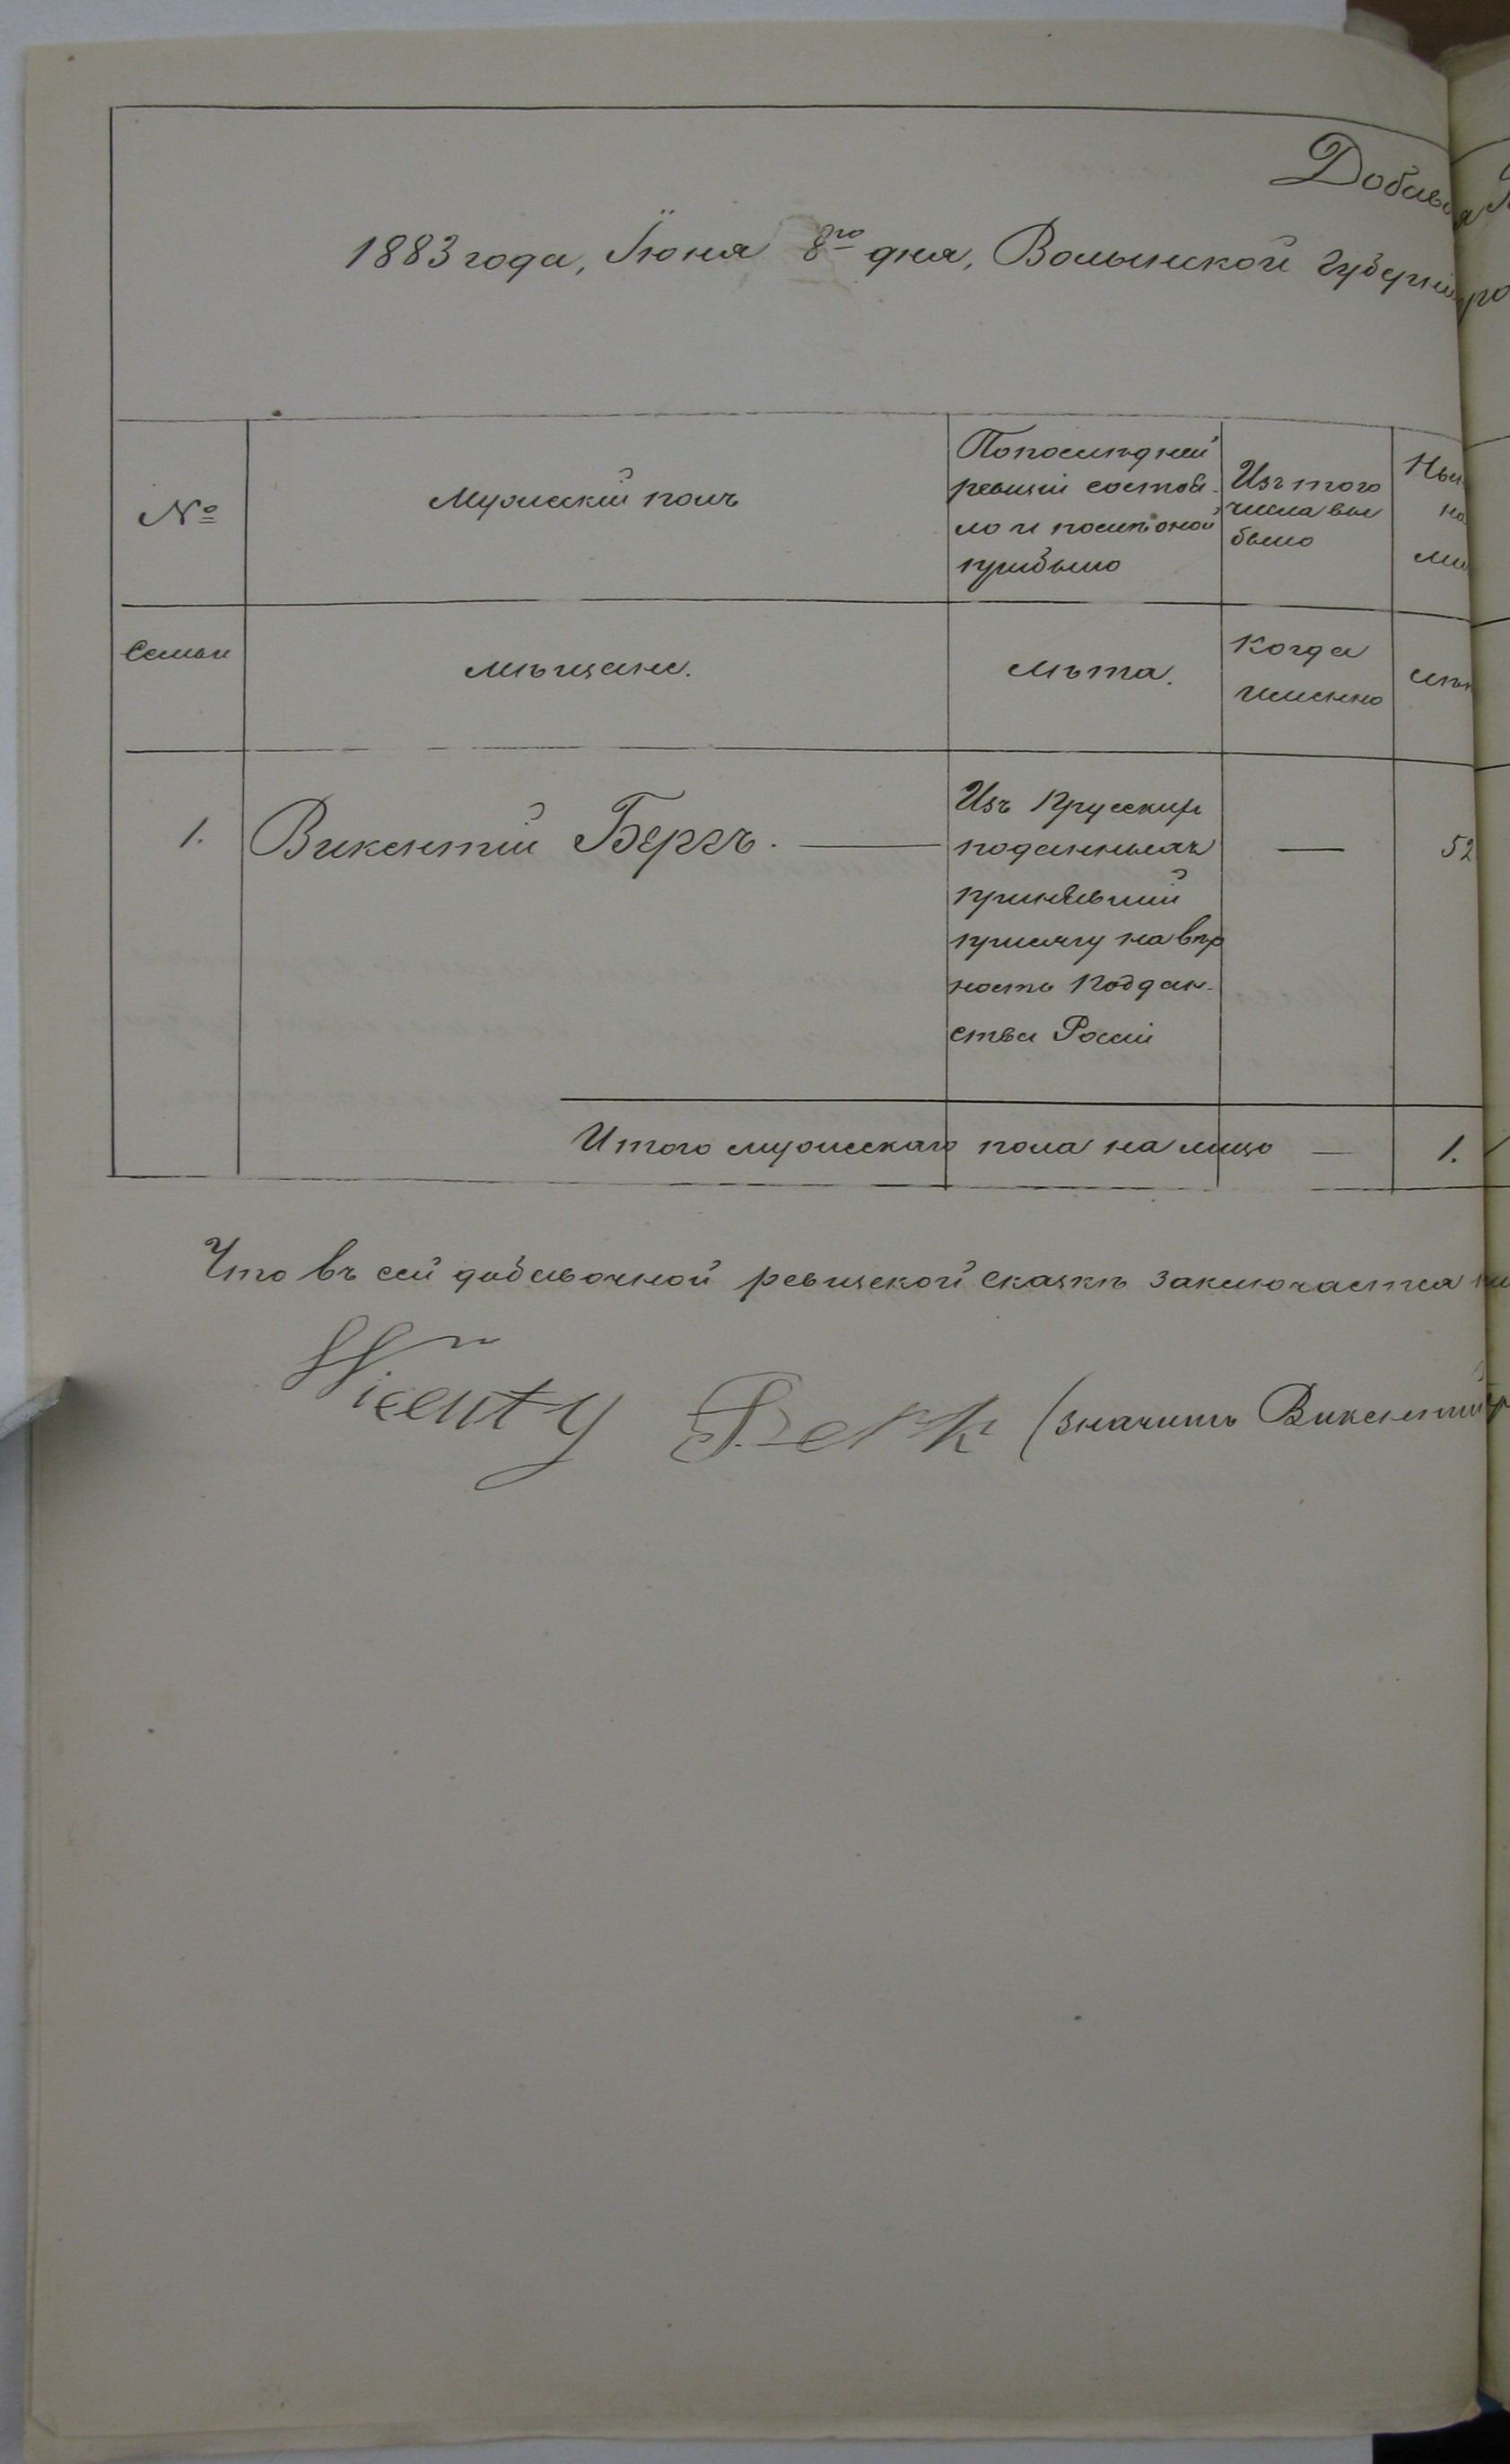 Добав
1883 года, Іюня 8го дня, Волынской Губерніи
№
Мужескій полъ
Попослѣдней
ревизіи состоя-
ло и послѣ оной
прибыло
Изъ того
числа вы
было
Нын
на
ли
Семьи
мѣщане.
лѣта.
Когда
именно
лѣт
1. Викентій Бергъ.
Изъ Прусскихъ
поданныхъ
принявшій
присягу на вѣр
ность Поддан-
ства Россіи
—
52
Итого мужескаго пола на лицо — 1.
Что въ сей добавочной ревизской сказкѣ заключается
Wicenty Berk (значитъ Викентій